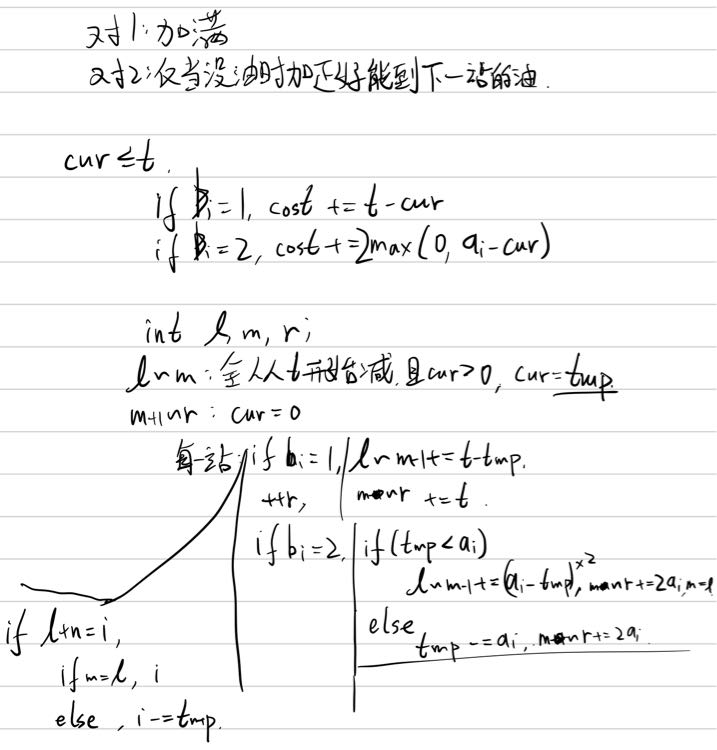 对1:加满
对2:仅当没油时加正好能到下一站的油.
cur≤t.
if bi=1, cost += t-cur
if bi=2, cost+=2max(0, ai-cur)
int l, m, r;
l~m:全从t开始减,且cur>0, cur=tmp
m+1~r: cur=0
每一站: if bi=1, l~m-1+=t-tmp.
++r, m~r +=t.
if bi=2, if(tmp<ai)
l~m-1+=(ai-tmp)×2, m~r+=2ai, m=l
else
tmp -=ai, m~r+=2ai.
if l+n=i,
if m=l, i
else, i-=tmp.